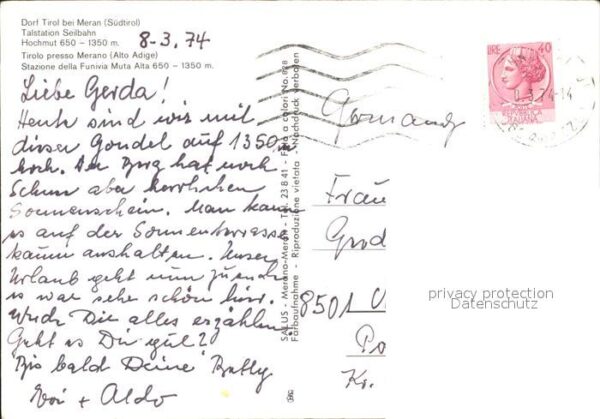 Dorf Tirol bei Meran (Südtirol)
Talstation Seilbahn
Hochmut 650 – 1350 m.
Tirolo presso Merano (Alto Adige)
Stazione della Funivia Muta Alta 650 – 1350 m.
8-3.74
Liebe Gerda!
Heute sind wir mit
dieser Gondel auf 1350 m
hoch. Der Berg hat noch
Schnee aber herrlichen
Sonnenschein. Man kann
es auf der Sonnenterrasse
kaum aushalten. Unser
Urlaub geht nun zuende
es war sehr schön hier.
Werde Dir alles erzählen.
Geht es Dir gut?
Bis bald Deine
+ Aldo
SALUS - Merano-Meran - Tel. 23841 - Foto a colori No. 828
Farbaufnahme - Riproduzione vietata - Nachdruck verboten
Germany
LIRE 40
.3.74-14
Frau
8501
Kr.
privacy protection
Datenschutz